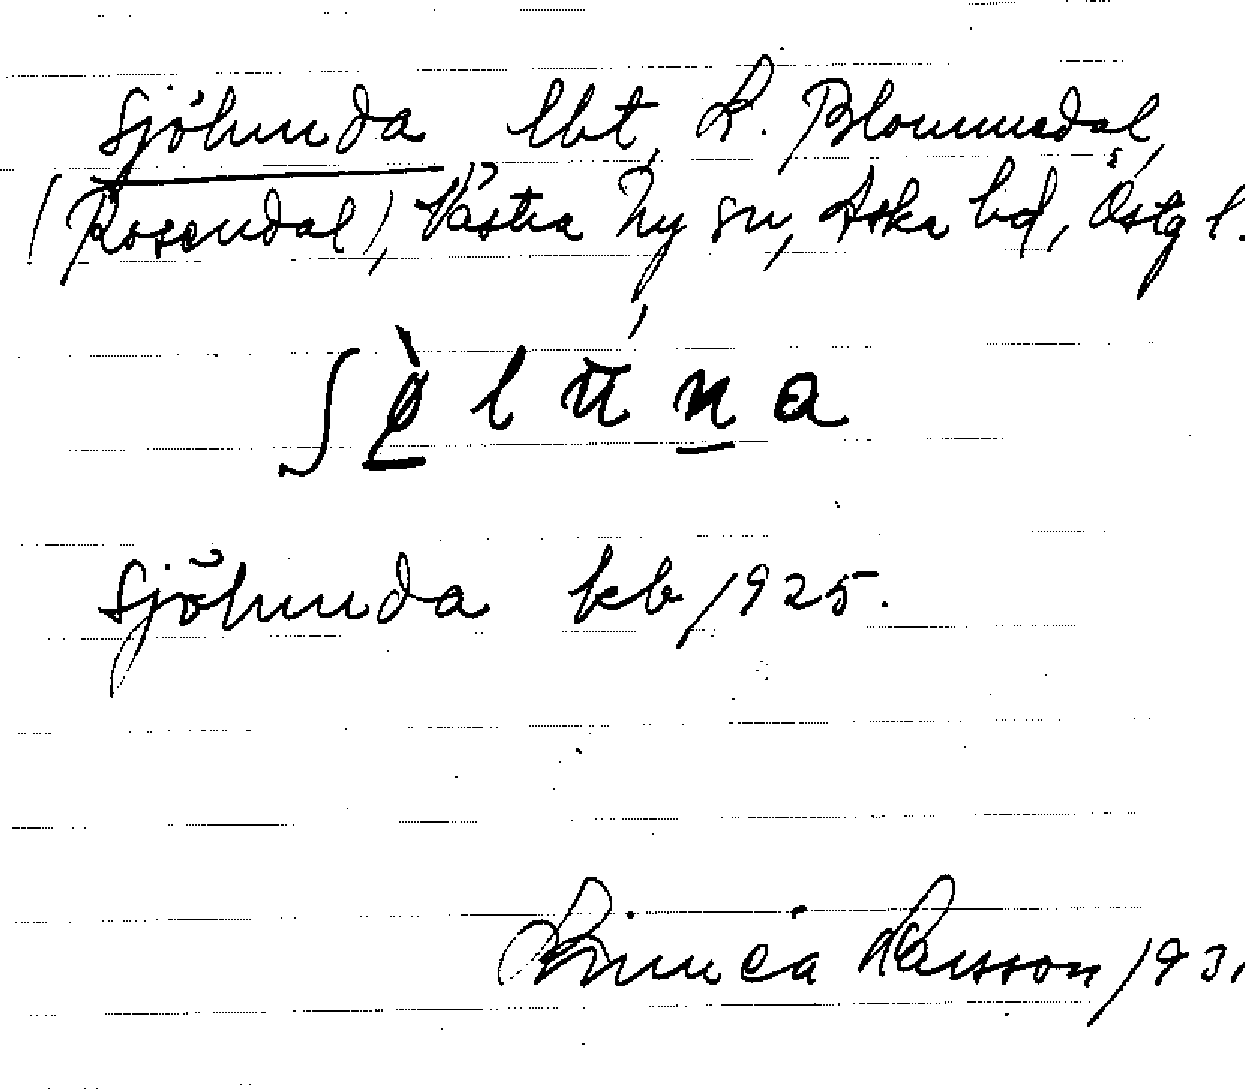 Sjölunda lht, L. Blommedal,
(Rosendal), Västra Ny sn, Aska hd, Östg l.
Sjölunda kb 1925.
Linnea Larsson 193